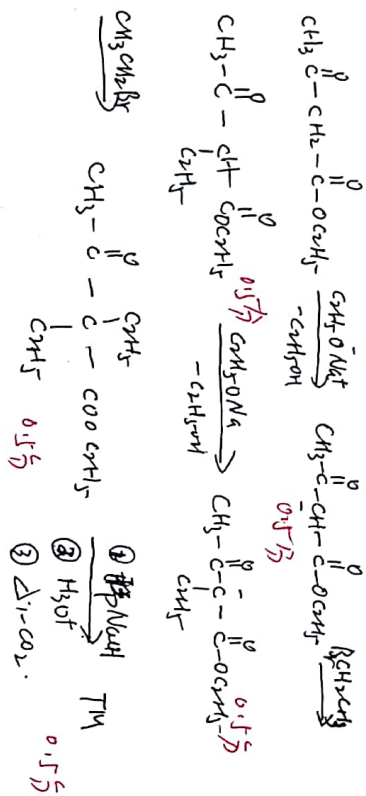 CH₃C(=O)-CH₂-C(=O)-OC₂H₅ C₂H₅O⁻Na⁺ -C₂H₅OH → CH₃-C(=O)-C̄H-C(=O)-OC₂H₅ 0.5分 BrCH₂CH₃ →
CH₃-C(=O)-CH(C₂H₅)-C(=O)OC₂H₅ 0.5分 C₂H₅ONa -C₂H₅OH → CH₃-C(=O)-C̄(C₂H₅)-C(=O)-OC₂H₅ 0.5分
CH₃CH₂Br → CH₃-C(=O)-C(C₂H₅)(C₂H₅)-COOC₂H₅ 0.5分 ① NaOH ② H₃O⁺ ③ △,-CO₂. → TM 0.5分